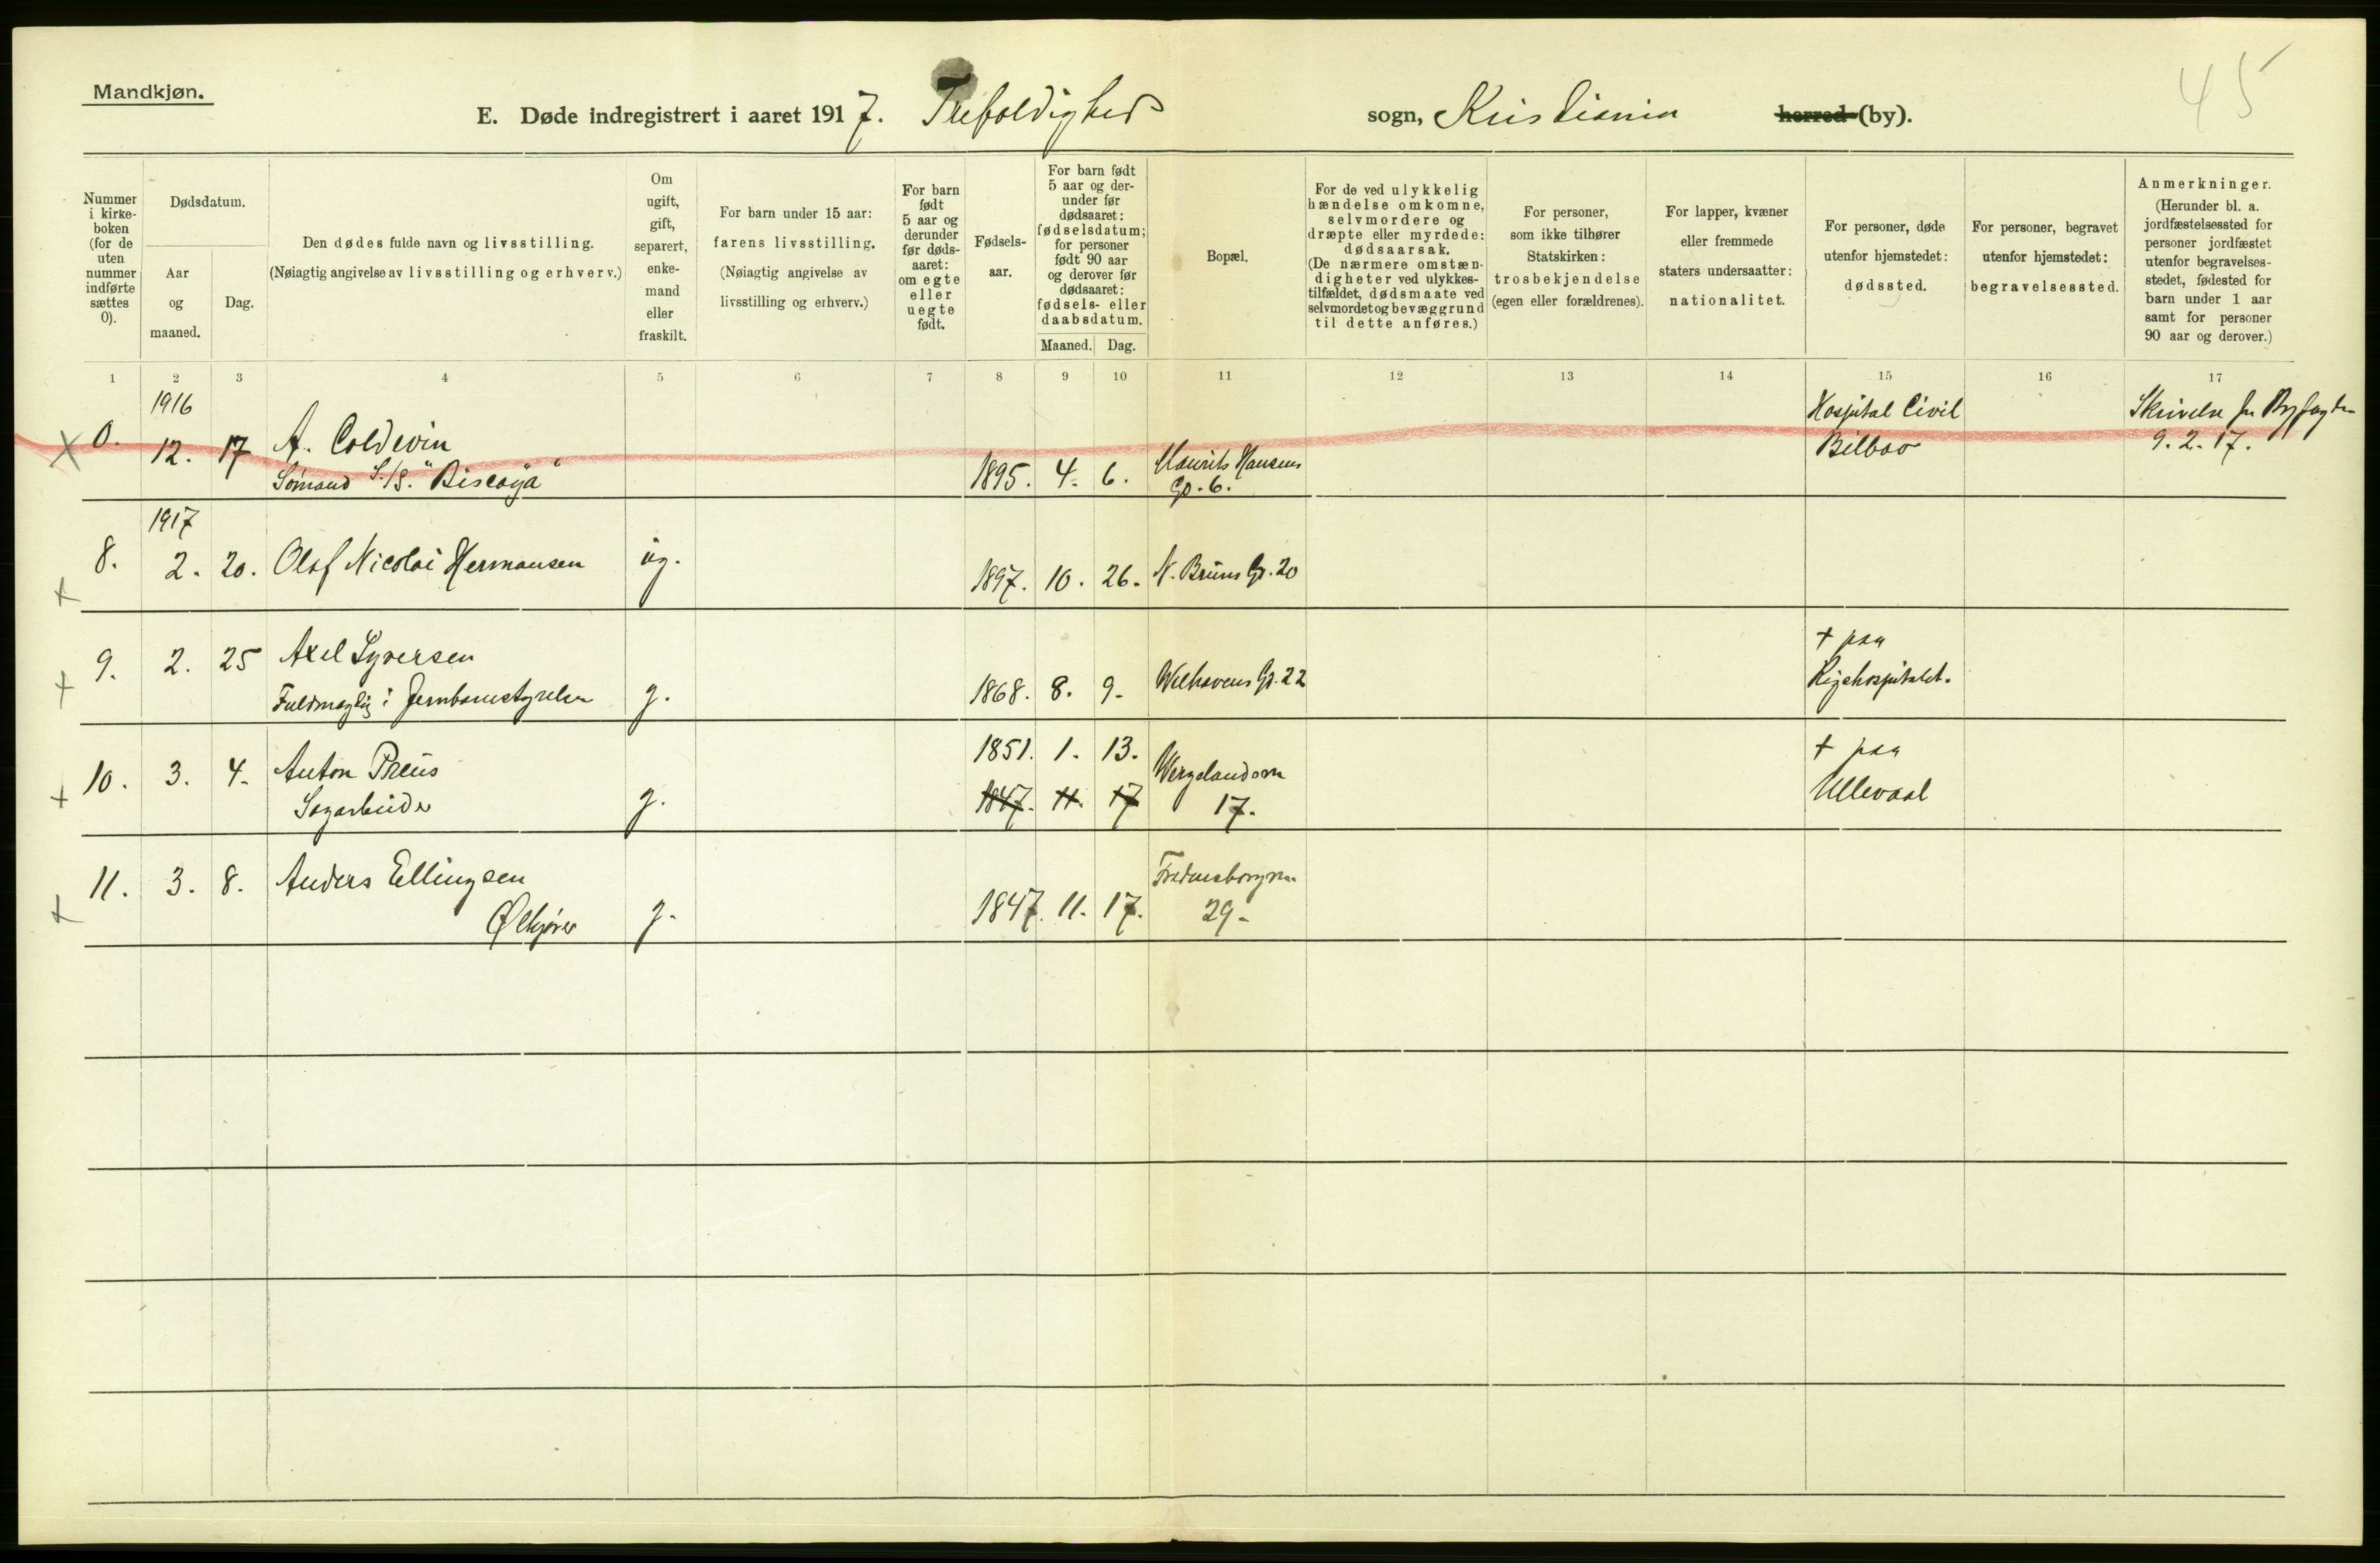 Mandkjøn.
45
E. Døde indregistrert i aaret 1917. Trefoldighed sogn, Kristiania herred (by).
Nummer i kirke- boken (for de uten nummer indførte sættes 0).
Dødsdatum.
Aar og maaned.
Dag.
Den dødes fulde navn og livsstilling.
(Nøiagtig angivelse av livsstilling og erhverv.)
Om ugift, gift, separert, enke- mand eller fraskilt.
For barn under 15 aar:
farens livsstilling.
(Nøiagtig angivelse av
livsstilling og erhverv.)
For barn født 5 aar og derunder før døds- aaret: om egte eller uegte født.
Fødsels- aar.
For barn født 5 aar og der- under før dødsaaret: fødselsdatum; for personer født 90 aar og derover før dødsaaret: fødsels- eller daabsdatum.
Maaned. Dag.
Bopæl.
For de ved ulykkelig hændelse omkomne, selvmordere og dræpte eller myrdede: dødsaarsak. (De nærmere omstæn- digheter ved ulykkes- tilfældet, dødsmaate ved selvmordet og bevæggrund til dette anføres.)
For personer, som ikke tilhører Statskirken: trosbekjendelse (egen eller forældrenes).
For lapper, kvæner eller fremmede staters undersaatter: nationalitet.
For personer, døde utenfor hjemstedet: dødssted.
For personer, begravet utenfor hjemstedet: begravelsessted.
Anmerkninger. (Herunder bl. a. jordfæstelsessted for personer jordfæstet utenfor begravelses- stedet, fødested for barn under 1 aar samt for personer 90 aar og derover.)
1 2 3 4 5 6 7 8 9 10 11 12 13 14 15 16 17
1916
0. 12. 17 A. Coldevin
Sømand S/S. "Biscaya" 1895. 4. 6. Maurits Hansens Gd. 6. Hospital Civil Bilbao Skrivelse fra Byfogden 9. 2. 17.
1917
8. 2. 20. Olaf Nicolai Hermansen ug. 1897. 10. 26. N. Bruns Gd. 20
9. 2. 25 Axel Syversen
Fuldmægtig i Jernbanestyrelsen g. 1868. 8. 9. Welhavens Gd. 22 + paa Rigshospitalet.
10. 3. 4. Anton Preus 1851. 1. 13. Wergelandsvn 17. + paa Ullevaal
Sagarbeider g. 1847. 11. 17
11. 3. 8. Anders Ellingsen
Ølkjører g. 1847. 11. 17. Fredensborgvn. 29.